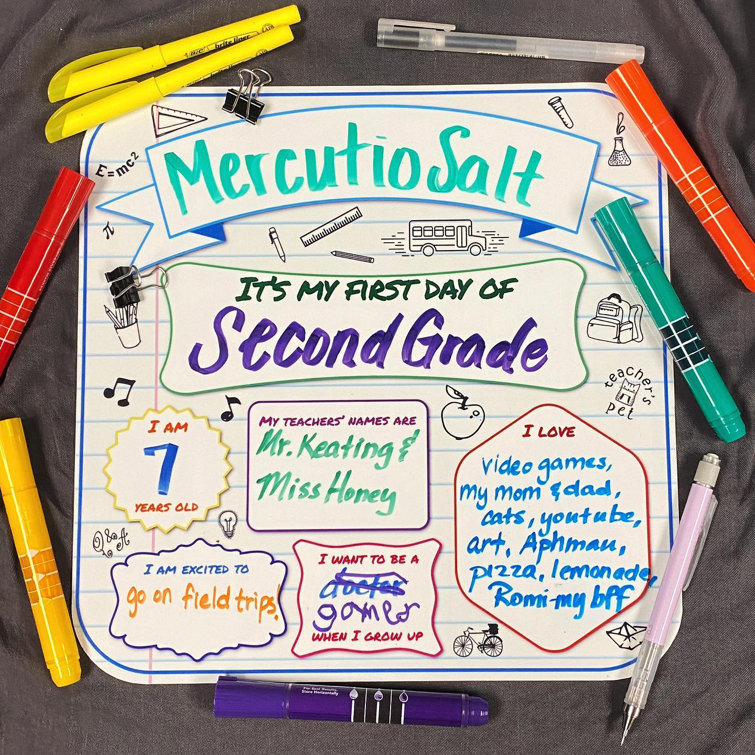 BIC brite liner
E=mc²
Mercutio Salt
π
IT'S MY FIRST DAY OF
Second Grade
teacher's
pet
I AM
7
YEARS OLD
MY TEACHERS' NAMES ARE
Mr. Keating &
Miss Honey
I LOVE
video games,
my mom & dad,
cats, youtube,
art, Aphmau,
pizza, lemonade,
Romi-my bff
Q&A
I AM EXCITED TO
go on field trips!
I WANT TO BE A
doctor
gamer
WHEN I GROW UP
For Best Results
Store Horizontally